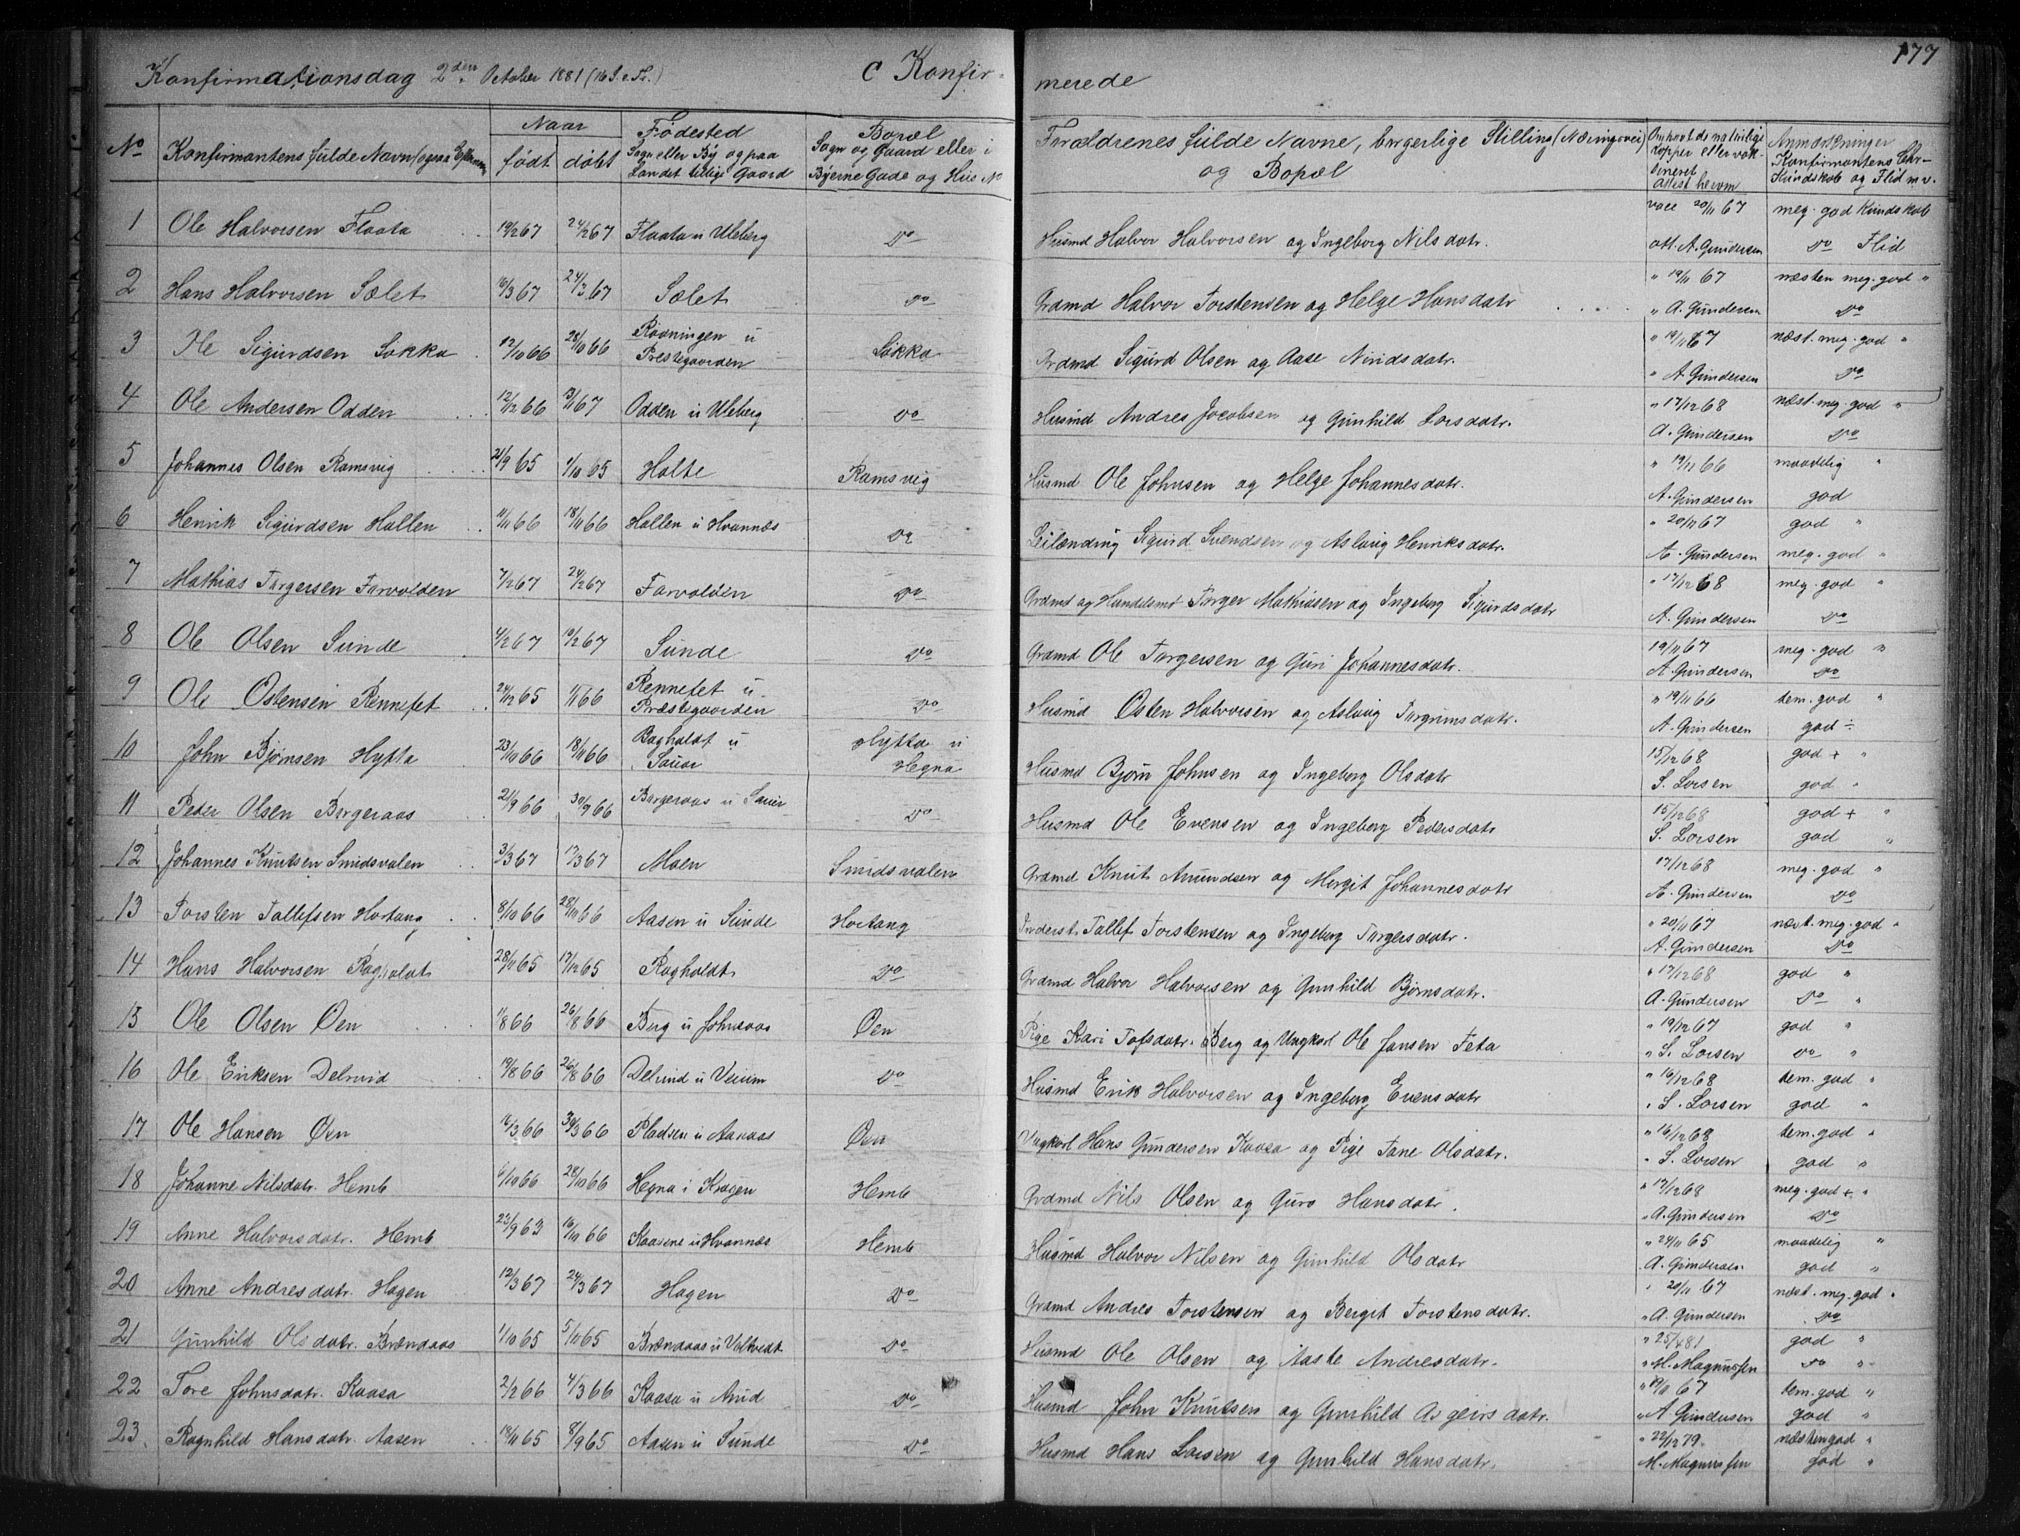 177
Konfirmationsdag 2den October 1881 (16 S. e. Tr.) C Konfirmerede
No Konfirmantens fulde Navn (ogsaa Efternavn) Naar født døbt Fødested Sogn eller By og paa Landet tillige Gaard Bopæl Sogn og Gaard eller i Byerne Gade og Hus No Forældrenes fulde Navne, borgerlige Stilling (Næringsvei) og Bopæl Om havt de naturlige Kopper eller vaccineret Attest herom Anmærkninger Konfirmantens Chr-Kundskab og Flid m. v.
1 Ole Halvorsen Flaata 19/2 67 24/2 67 Flaata u Uleberg Do Husmd Halvor Halvorsen og Ingeborg Nilsdatr. vacc 20/11 67 att. A. Gundersen meg. god Kundskab Do Flid
2 Hans Halvorsen Sælet 10/3 67 24/3 67 Sælet Do Grdmd Halvor Torstensen og Helge Hansdatr " 19/11 67 " A. Gundersen næsten meg. god " Do
3 Ole Sigurdsen Løkka 12/10 66 28/10 66 Rønningen u Prestegaarden Løkka Grdmd Sigurd Olsen og Aase Niridsdatr. " 19/11 67 " A. Gundersen næst. meg. god " Do
4 Ole Andersen Odden 12/12 66 13/1 67 Odden u Uleberg Do Husmd Andres Jacobsen og Gunhild Larsdatr. " 17/12 68 A. Gundersen næst. meg. god " Do
5 Johannes Olsen Ramsvig 21/9 65 1/10 65 Holte Ramsvig Husmd Ole Johnsen og Helge Johannesdatr. " 19/11 66 A. Gundersen maadelig " god
6 Henrik Sigurdsen Hallen 11/11 66 18/11 66 Hallen u Hvannæs Do Leilænding Sigurd Svendsen og Aslaug Henriksdatr. " 20/11 67 A. Gundersen god " meg. god "
7 Mathias Torgersen Farvolden 7/2 67 24/2 67 Farvolden Do Grdmd og Handelsmd Torger Mathisen og Ingeborg Sigurdsdatr " 17/12 68 A. Gundersen meg. god " Do
8 Ole Olsen Sunde 4/2 67 10/2 67 Sunde Do Grdmd Ole Torgersen og Guri Johannesdatr. 19/11 67 A. Gundersen meg. god " Do
9 Ole Østensen Rennefet 24/12 65 1/1 66 Rennefet u. Præstegaarden Do Husmd Østen Halvorsen og Aslaug Torgrimsdatr. " 19/11 66 A. Gundersen tem. god " god ÷
10 John Bjørnsen Hytta 23/10 66 18/11 66 Bagholdt u Sauar Hytta u Hegna Husmd Bjørn Johnsen og Ingeborg Olsdatr 15/12 68 S. Larsen god + " god "
11 Peder Olsen Borgeraas 21/9 66 30/9 66 Borgeraas u Sauar Do Husmd Ole Evensen og Ingeborg Pedersdatr 15/12 68 S. Larsen god + " god "
12 Johannes Knutsen Smidsvalen 3/3 67 17/3 67 Moen Smidsvalen Grdmd Knut Amundsen og Mergit Johannesdatr 17/12 68 A. Gundersen meg. god " Do
13 Torsten Tallefsen Hortang 8/10 66 28/10 66 Aasen u Sunde Hortang Inderst Tallef Torstensen og Ingeborg Torgersdatr. " 20/11 67 A. Gundersen næst. meg. god " Do
14 Hans Halvorsen Ragholdt 28/11 65 17/12 65 Ragholdt Do Grdmd Halvor Halvorsen og Gunhild Bjørnsdatr. " 17/12 68 A. Gundersen god " Do "
15 Ole Olsen Øen 11/8 66 26/8 66 Berg u Johnsaas Øen Pige Kari Tofsdatr. Berg og Ungkarl Ole Jansen Teta " 19/12 67 " S. Larsen god " Do "
16 Ole Eriksen Delruid 19/8 66 26/8 66 Delruid u Verum Do Husmd Erik Halvorsen og Ingeborg Evensdatr " 16/12 68 " S. Larsen tem. god " god "
17 Ole Hansen Øen 16/3 66 30/3 66 Pladsen u Aanaas Øen Ungkarl Hans Gundersen Kaasa og Pige Tane Olsdatr. " 16/12 68 " S. Larsen tem. god " god "
18 Johanne Nilsdatr. Hemb 6/10 66 28/10 66 Hegna i Kragen Hemb Grdmd Nils Olsen og Guro Hansdatr. " 17/12 68 " A. Gundersen meg. god + " Do
19 Anne Halvorsdatr. Hemb 23/9 63 16/10 66 Kaasene u Hvannæs Hemb Husmd Halvor Nilsen og Gunhild Olsdatr " 24/11 65 A. Gundersen maadelig " god "
20 Anne Andresdatr. Hagen 12/3 67 24/3 67 Hagen Do Grdmd Andres Torstensen og Bergit Torstensdatr. " 20/11 67 " A. Gundersen næst. meg. god " Do
21 Gunhild Olsdatr. Brændaas 1/10 65 5/11 65 Brændaas u Valkvedt Do Husmd Ole Olsen og Aaste Andresdatr. " 25/4 81 " H. Magnussen god " Do "
22 Tore Johnsdatr. Kaasa 2/12 66 4/3 66 Kaasa u Aruid Do Husmd John Knutsen og Gunhild Asgeirsdatr. " 19/11 67 " A Gundersen tem. god " god "
23. Ragnhild Hansdatr. Aasen 18/11 65 8/9 65 Aasen u Sunde Do Husmd Hans Larsen og Gunhild Hansdatr. " 22/12 79. H. Magnussen næsten god " god "